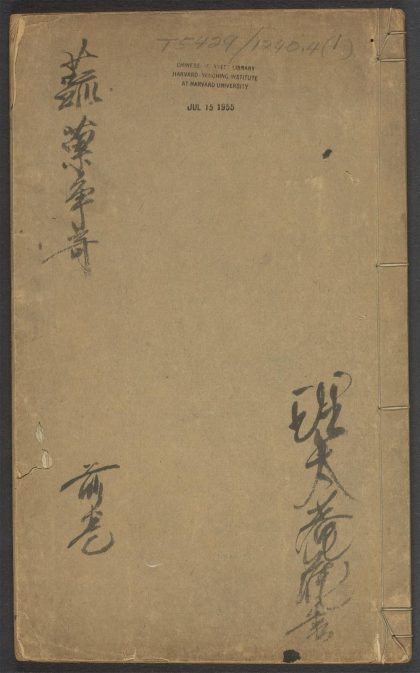 T5429/1290.4(1)
CHINESE-JAPANESE LIBRARY
HARVARD-YENCHING INSTITUTE
AT HARVARD UNIVERSITY
JUL 15 1955
蔬菓争竒
前卷